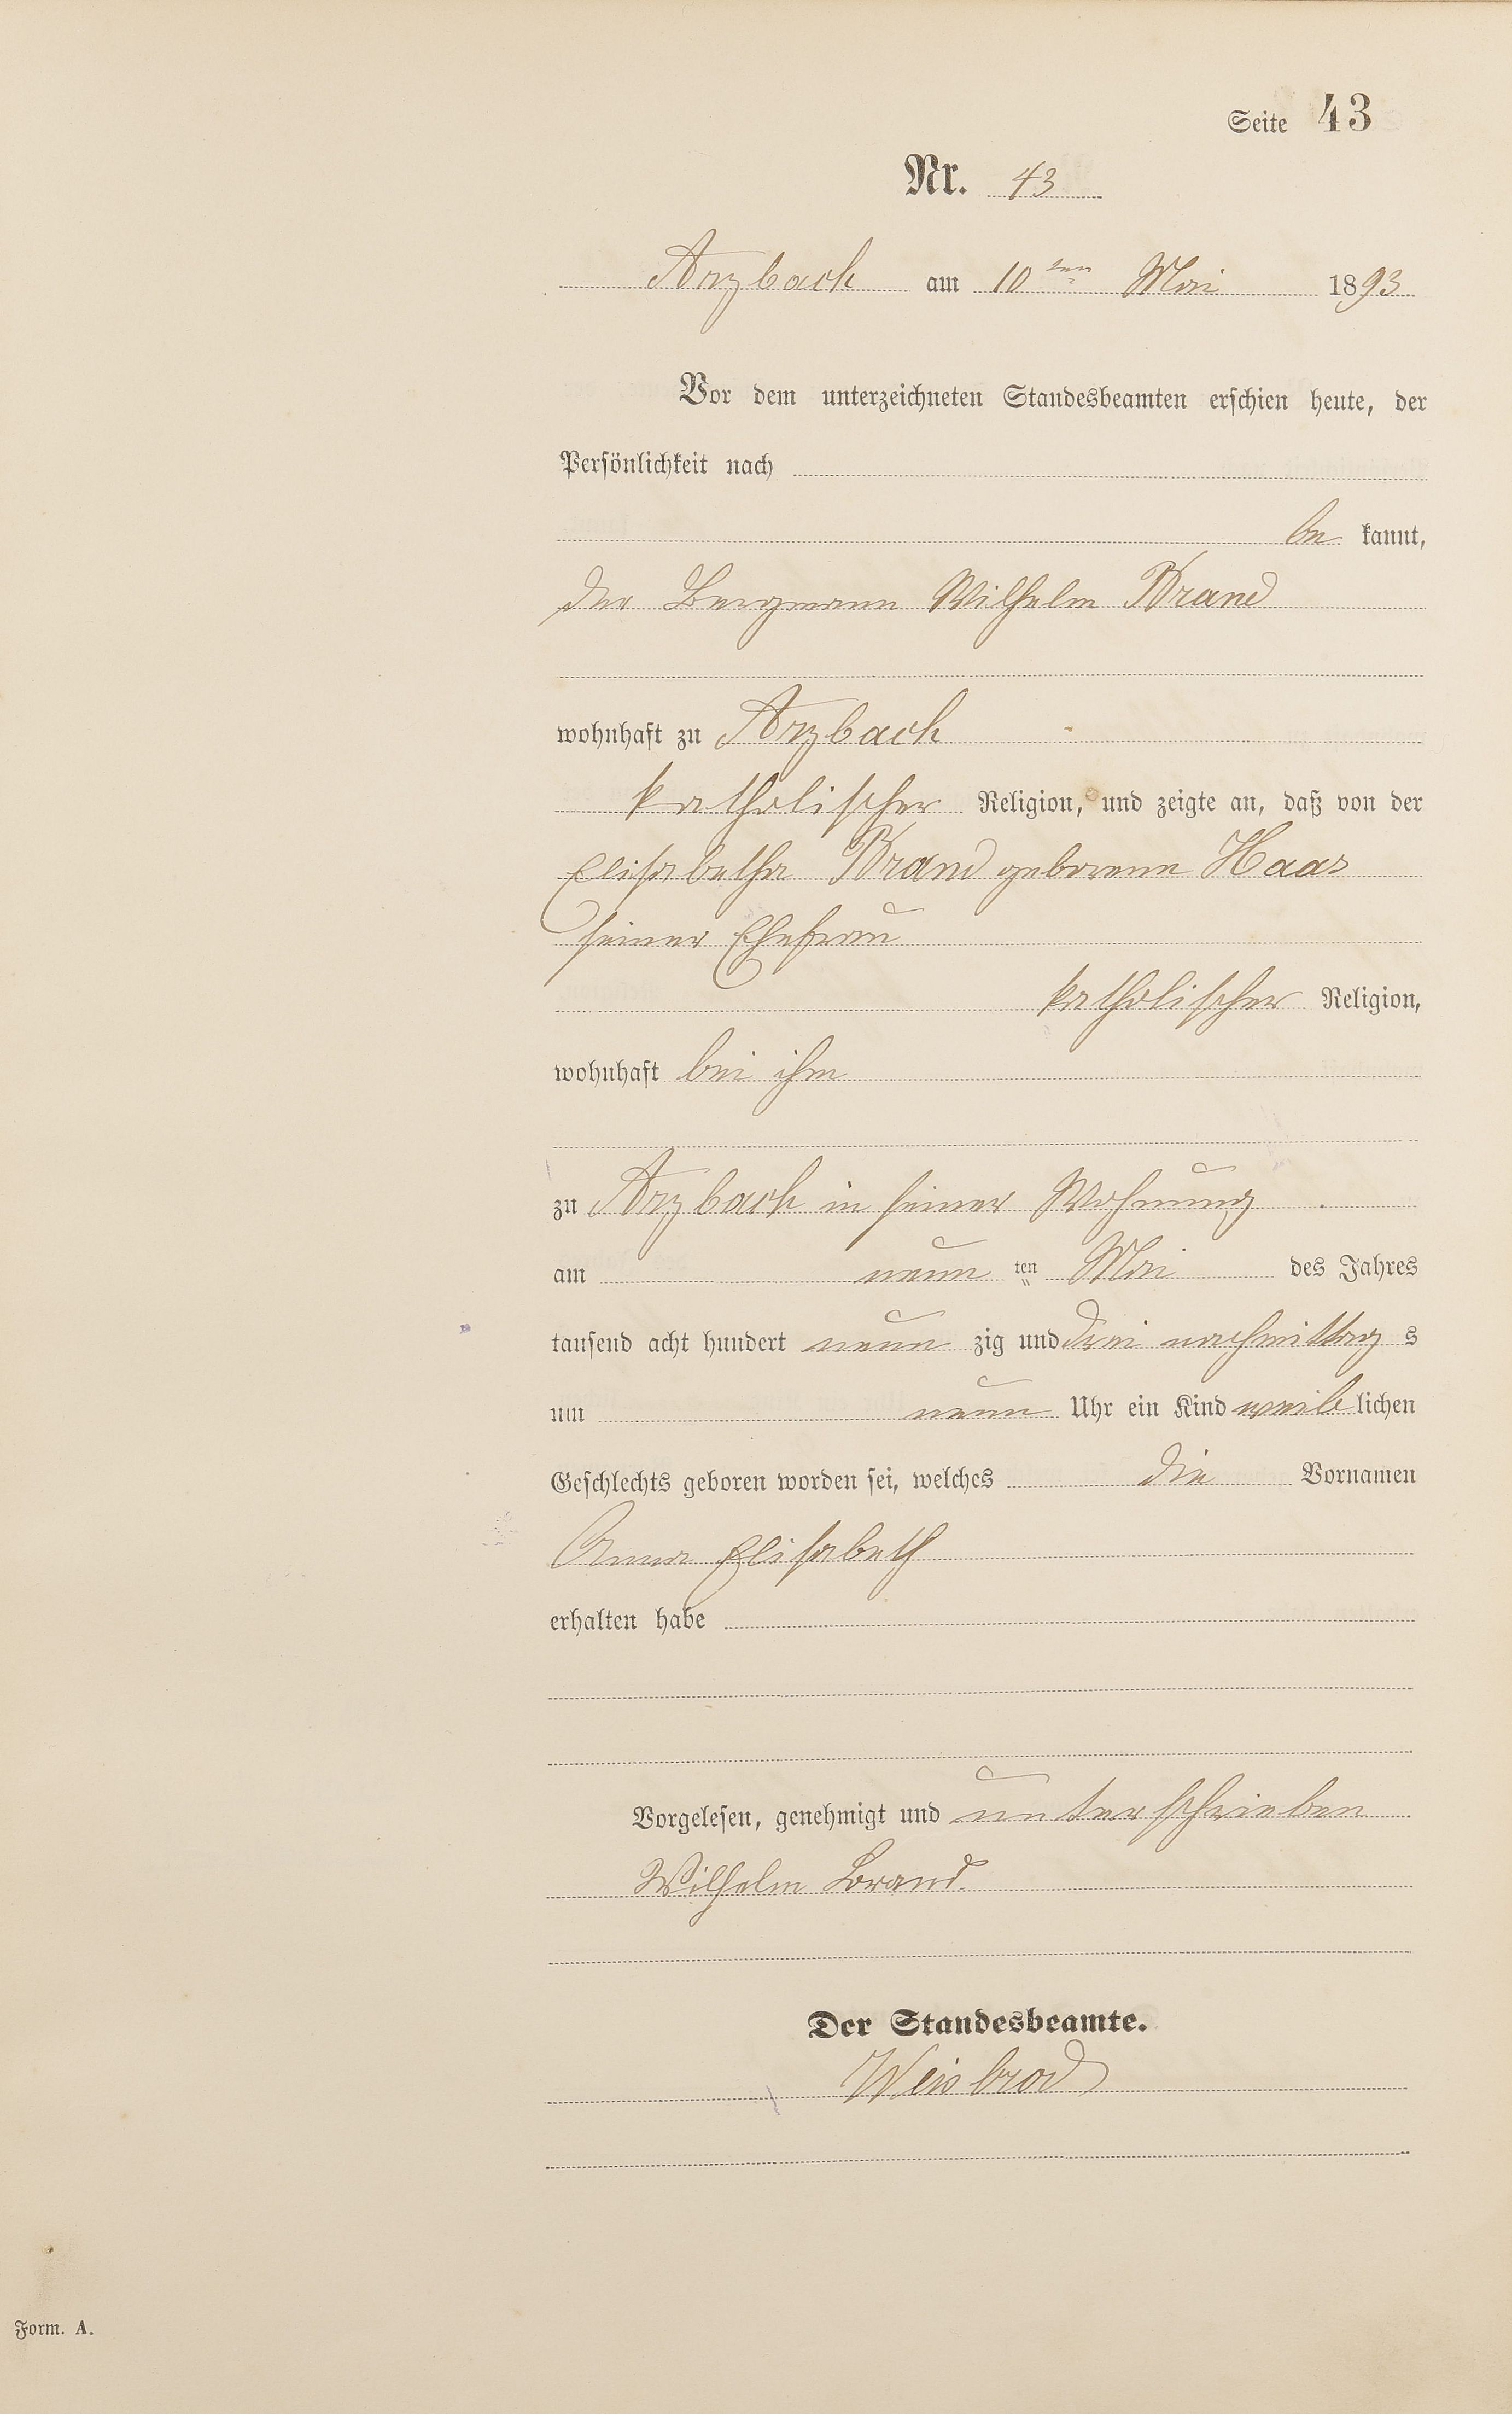 Seite 43
Nr. 43
Arzbach am 10ten Mai 1893
Vor dem unterzeichneten Standesbeamten erschien heute, der
Persönlichkeit nach
be kannt,
der Bergmann Wilhelm Brand
wohnhaft zu Arzbach
katholischer Religion, und zeigte an, daß von der
Elisabetha Brand geborene Haas
seiner Ehefrau
katholischer Religion,
wohnhaft bei ihm
zu Arzbach in seiner Wohnung
am neun ten Mai des Jahres
tausend acht hundert neun zig und drei nachmittag s
um neun Uhr ein Kind weib lichen
Geschlechts geboren worden sei, welches die Vornamen
Anna Elisabeth
erhalten habe
Vorgelesen, genehmigt und unterschrieben
Wilhelm Brand.
Der Standesbeamte.
Weisbrod
Form. A.